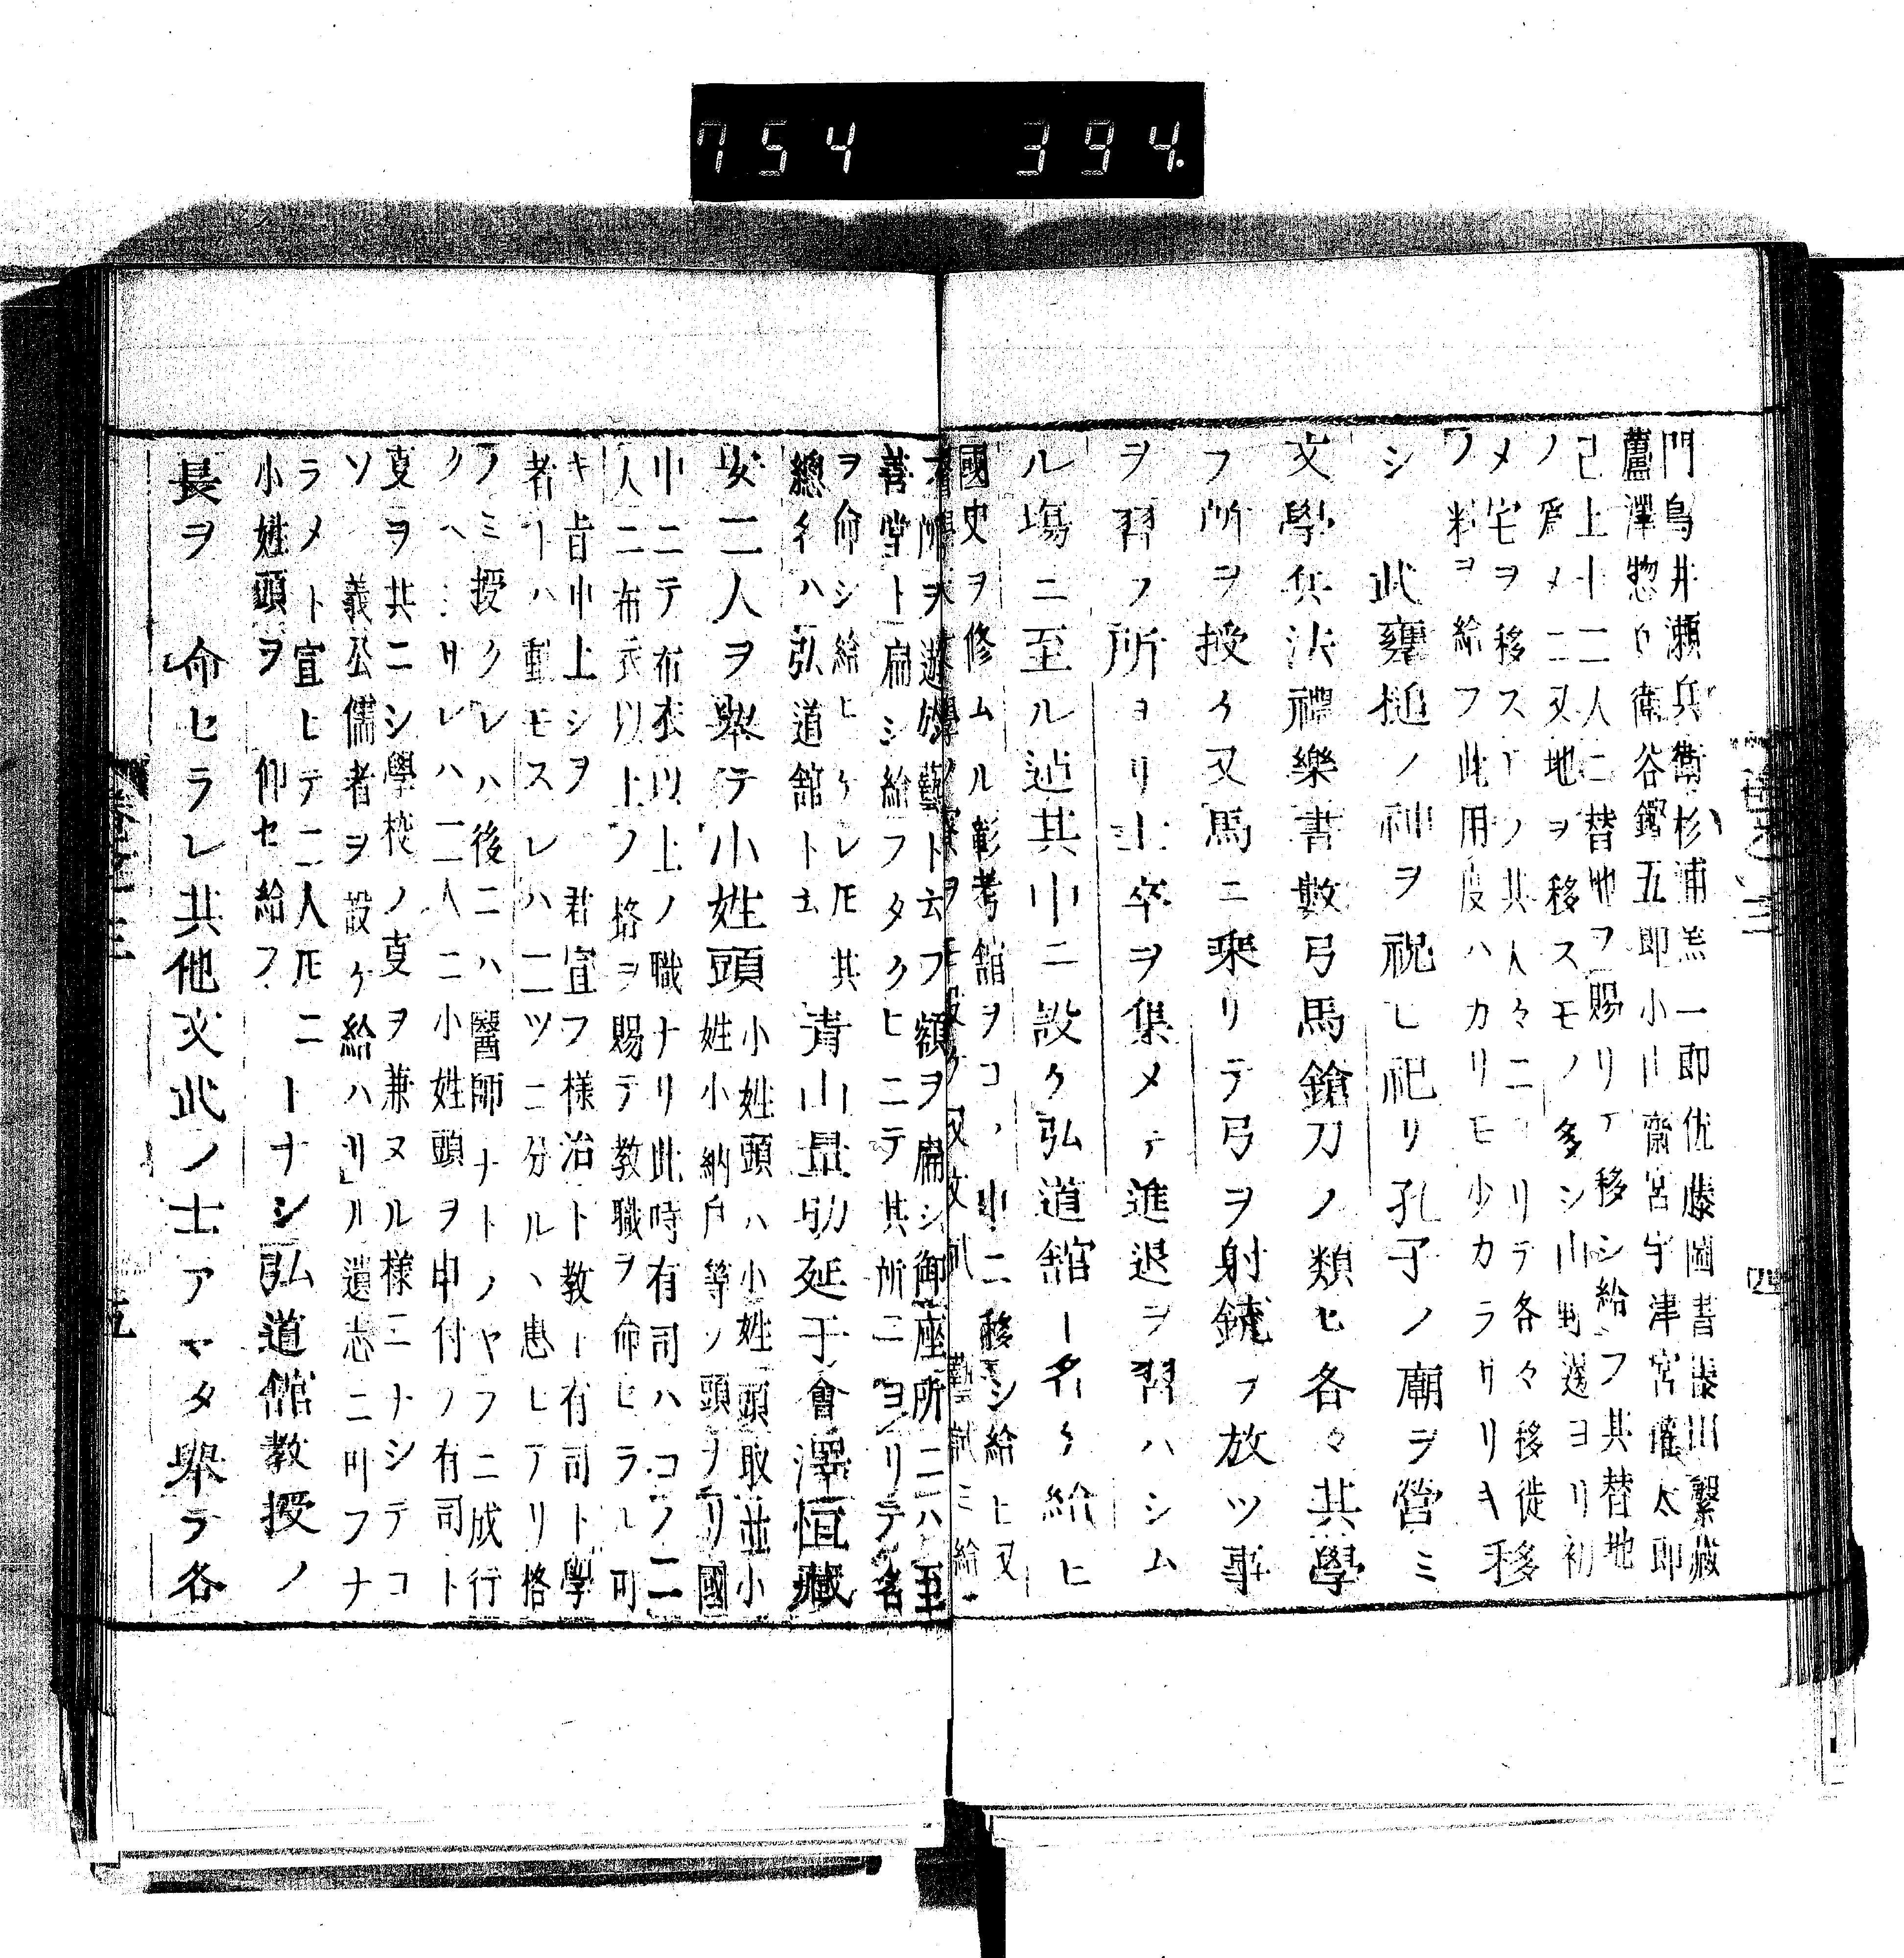 754 394.
門鳥井瀬兵衛杉浦羔一郎佐藤圖書藤川繫藏
蘆澤惣兵衛谷鐸五郎小川齋宮宇津宮權太郎
己上十二人ニ替地ヲ賜リテ移シ給フ其替地
ノ爲メニ又地ヲ移スモノ多シ山野邊ヨリ初
メ宅ヲ移スノ其人々ニヨリテ各々移徙
ノ料ヲ給フ此用度ハカリモ少カラサリキ移
シ 此甕槌ノ神ヲ祝し祀リ孔子ノ廟ヲ營ミ
文學兵法禮樂書數弓馬鎗刀ノ類ヒ各々其學
フ所ヲ授ケ又馬ニ乘リテ弓ヲ射銃ヲ放ツ事
ヲ習フ所ヨリ士卒ヲ集メテ進退ヲ習ハシム
ル場ニ至ル迠其中ニ設ケ弘道館ト名ケ給ヒ
國史ヲ修ムル彰考館ヲコノ中ニ移シ給ヒ又
フ所ヲ遊於藝ト云フ額ヲ扁シ御座所ニハ至
善堂ト扁シ給フタクヒニテ其所ニヨリテ名
ヲ命シ給ヒケレ𪜈其
總名ハ弘道館ト云 青山量助延于會澤恒藏
安二人ヲ舉テ小姓頭
小姓頭ハ小姓頭取並小
姓小納戸等ノ頭ヲリ國
中ニテ布衣以上ノ職ナリ此時有司ハコノ二
人ニ布衣以上ノ格ヲ賜テ教職ヲ命セラレ可
キ旨申上シヲ 君宣フ様治ト教ト有司ト學
者トハ動モスレハ二ツニ分ル丶患ヒアリ格
ノミ授クレハ後ニハ醫師ナトノヤフニ成行
クヘシサレハ二人ニ小姓頭ヲ申付ノ有司ト
㕝ヲ共ニシ學校ノ㕝ヲ兼ヌル様ニナシテコ
ソ 義公儒者ヲ設ケ給ハリル遺志ニ叶フナ
ラメト宣ヒテ二人𪜈ニ
小姓頭ヲ 仰セ給フ トナシ弘道館教授ノ
長ヲ 命セラレ其他文武ノ士アマタ舉ラ各